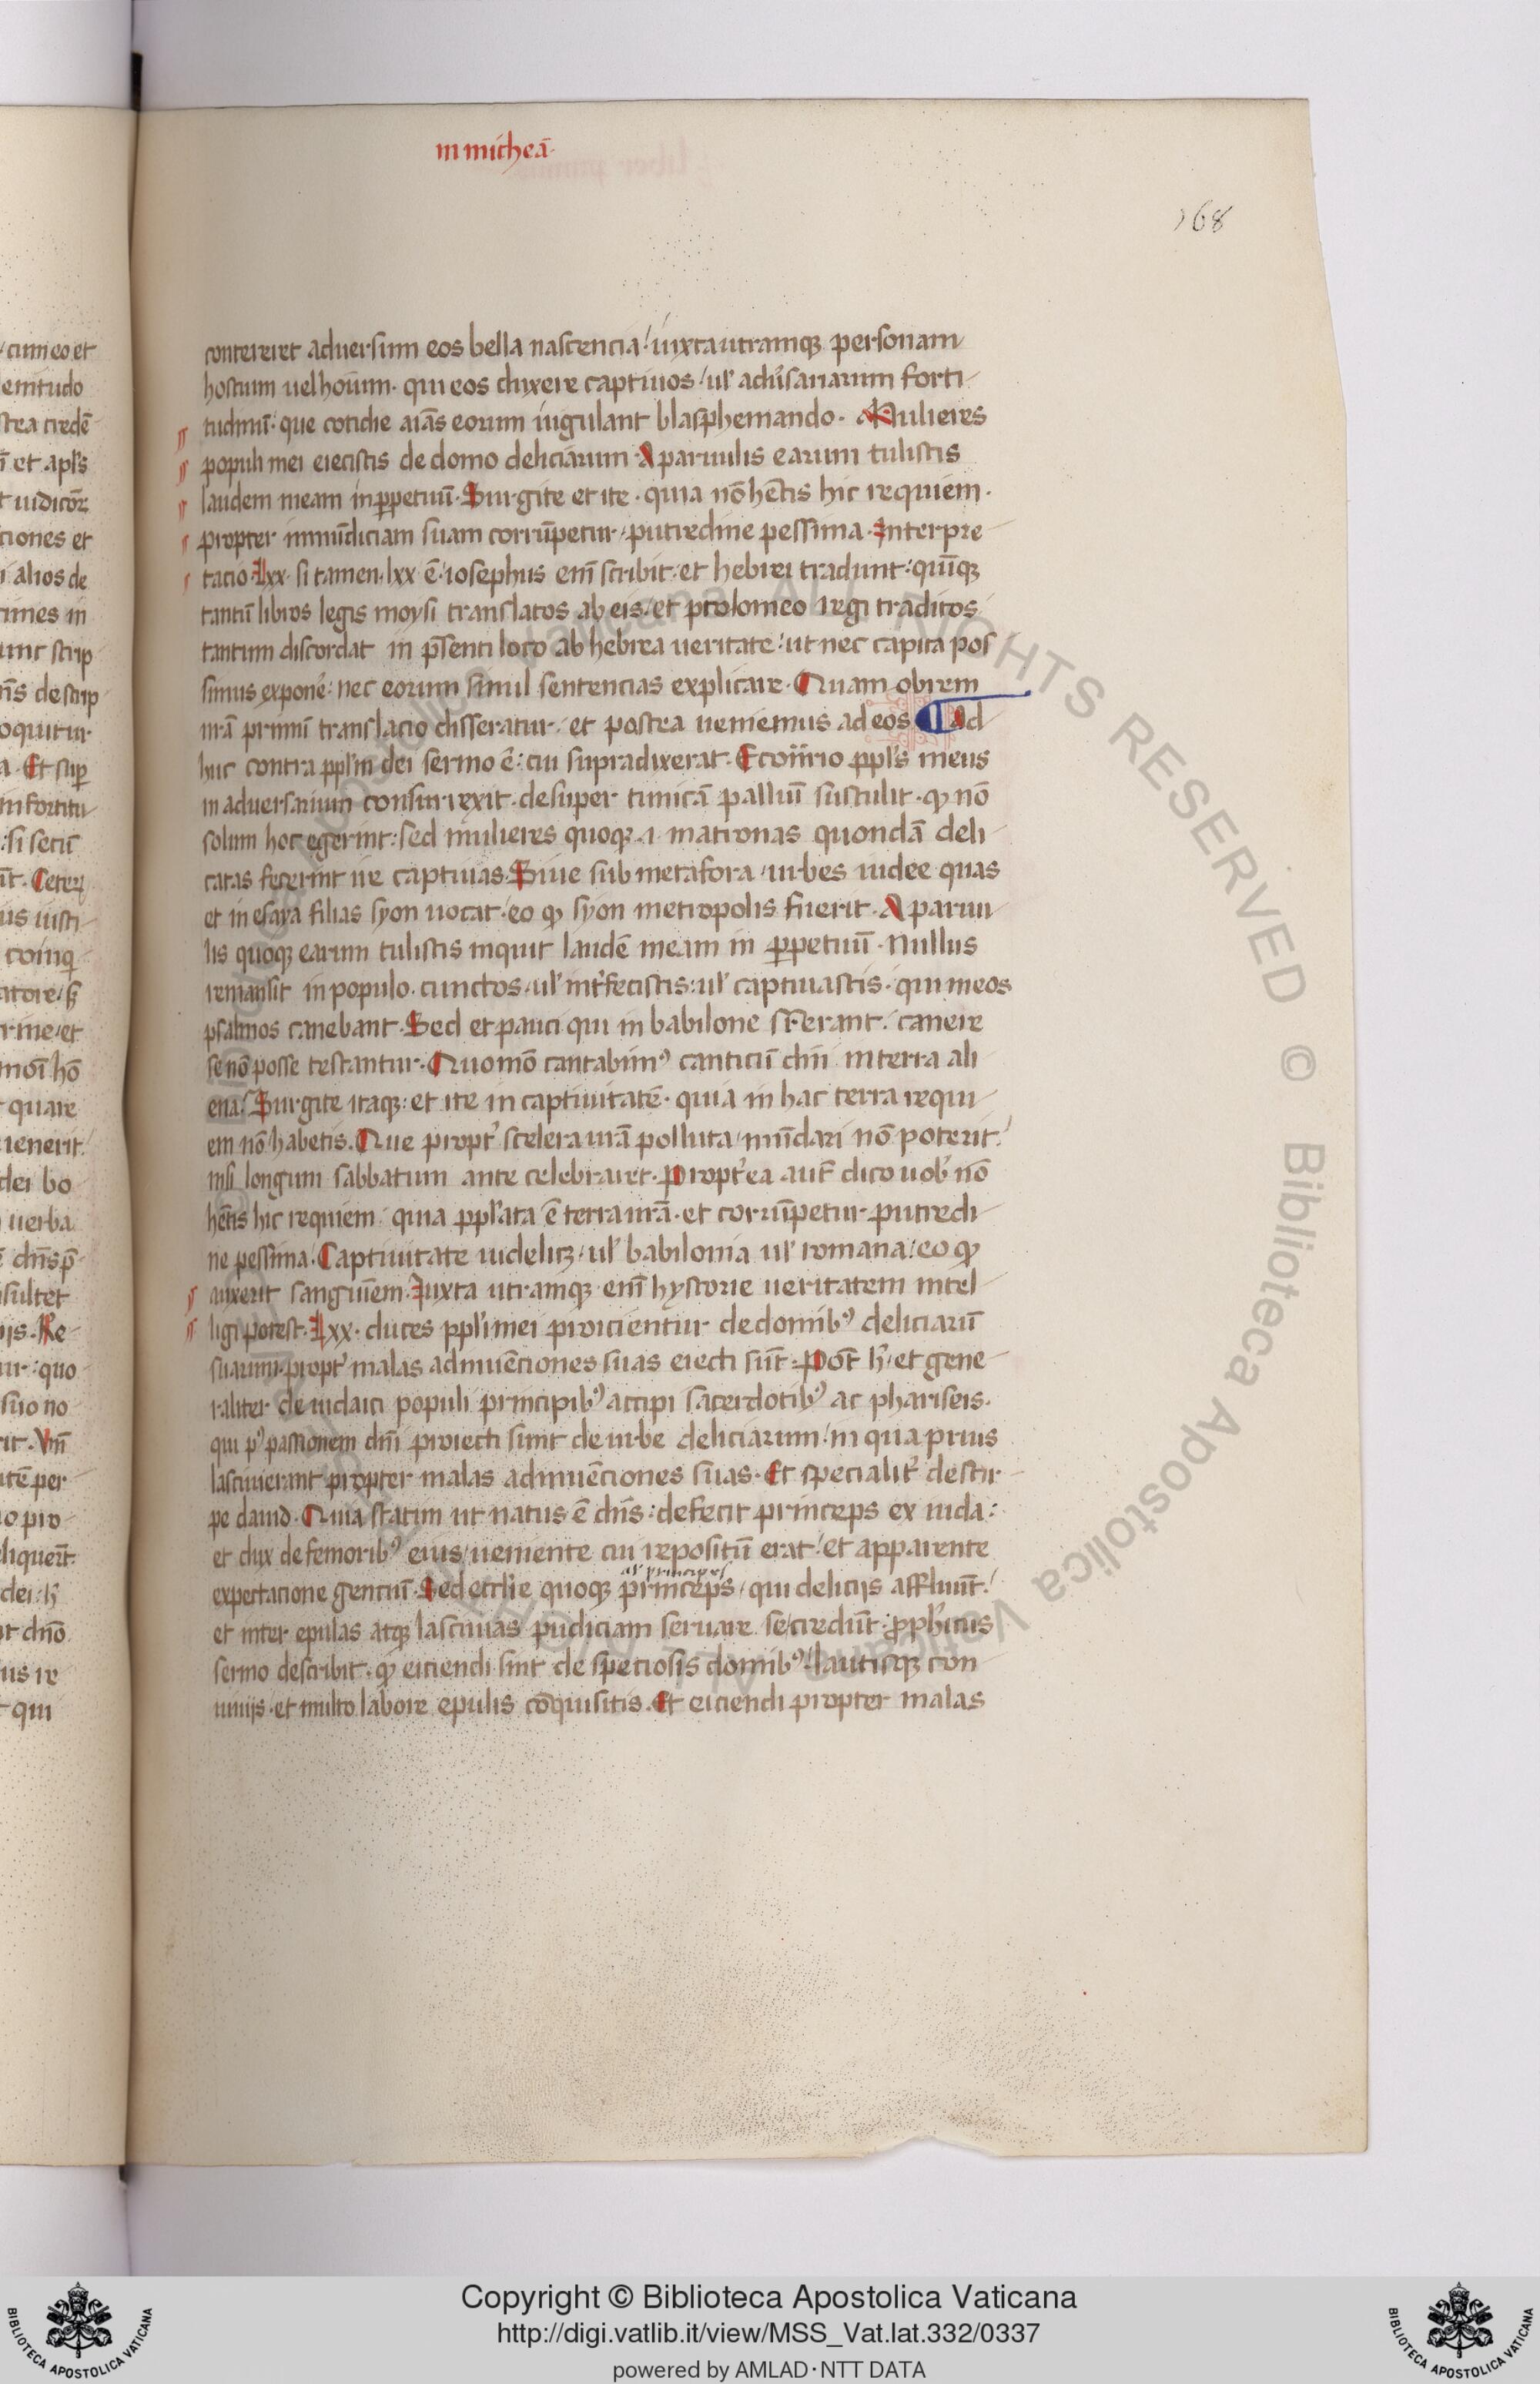 in micheā
168
contereret adversum eos bella nascencia / iuxta utramq; personam
hostium uel hoīum. qui eos duxere captiuos / ul' adūsariarum forti
tudinū. que cotidie aīas eorum iugulant blasphemando. Mulieres
populi mei eiecistis de domo deliciarum. A paruulis earum tulistis
laudem meam in ꝑpetuū. Surgite et ite. quia nō hētis hic requiem.
propter inmūdiciam suam corrūpetur / putredine pessima. Interpre
tacio Lxx. si tamen. lxx ē / iosephus enī scribit. et hebrei tradunt. quīq;
tantū libros legis moysi translatos ab eis. et ptolomeo regi traditos
tantum discordat in p̄senti loco ab hebrea ueritate. ut nec capita pos
simus exponē. nec eorum simul sentencias explicare. Quam obrem
nrā primū translacio disseratur. et postea ueniemus ad eos. Ad
huc contra ppl'm dei sermo ē. cui supra dixerat. Econīrio ppl's meus
in aduersarium consurrexit. desuper tunicā palliū sustulit. qꝫ nō
solum hoc egerint. sed mulieres quoq; .i. matronas quondā deli
catas fecerint ire captiuas. Siue sub metafora / urbes iudee quas
et in esaya filias syon uocat. eo qꝫ syon metropolis fuerit. A paruu
lis quoq; earum tulistis inquit laudē meam in ꝑpetuū. Nullus
remansit in populo. cunctos. ul' int'fecistis. ul' captiuastis. qui meos
psalmos canebant. Sed et pauci qui in babilone sr̄erant. canere
se nō posse testantur. Quomō cantabim⁹ canticū dn̄i in terra ali
ena. Surgite itaq;. et ite in captiuitatē. quia in hac terra requi
em nō habetis. Que propt' scelera urā polluta / mūdari nō poterit.
nisi longum sabbatum ante celebraret. Propt'ea aut̄ dico uob' nō
hētis hic requiem. quia ppl'ata ē terra urā. et corrūpetur putredi
ne pessima. Captiuitate uidelicꝫ. ul' babilonia ul' romana / eo qꝫ
auxerit sanguīem. Iuxta utramq; enī hystorie ueritatem intel
ligi potest. Lxx. duces ppl'i mei proicientur de domib⁹ deliciarū
suarum. propt' malas adinuēciones suas eiecti sūt. Pōt h'. et gene
raliter de iudaici populi principib⁹ accipi sacerdotib⁹ ac phariseis.
qui p⁹ passionem dn̄i proiecti sunt de urbe deliciarum. in qua prius
lasciuierant propter malas adinuēciones suas. Et specialit' de stir
pe dauid. Quia statim ut natus ē dn̄s. defecit princeps ex iuda.
et dux de femorib⁹ eius / ueniente cui repositū erat. et apparente
al' principes
expectacione gentiū. Sed eccl'ie quoq; princeps / qui delicijs affluūt.
et inter epulas atq; lasciuias pudiciam seruare se / credūt. prophīcus
sermo describit. qꝫ eiciendi sint de speciosis domib⁹. lautisq; con
uiuijs. et multo labore epulis cōquisitis. Et eiciendi propter malas
Copyright © Biblioteca Apostolica Vaticana
http://digi.vatlib.it/view/MSS_Vat.lat.332/0337
powered by AMLAD·NTT DATA